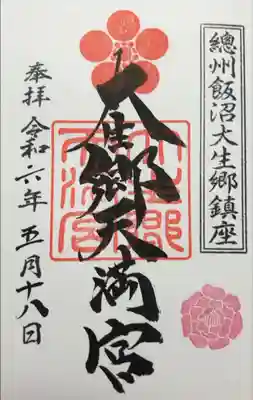 總州飯沼大生郷鎮座
大生郷天満宮
奉拝 令和六年 五月十八日